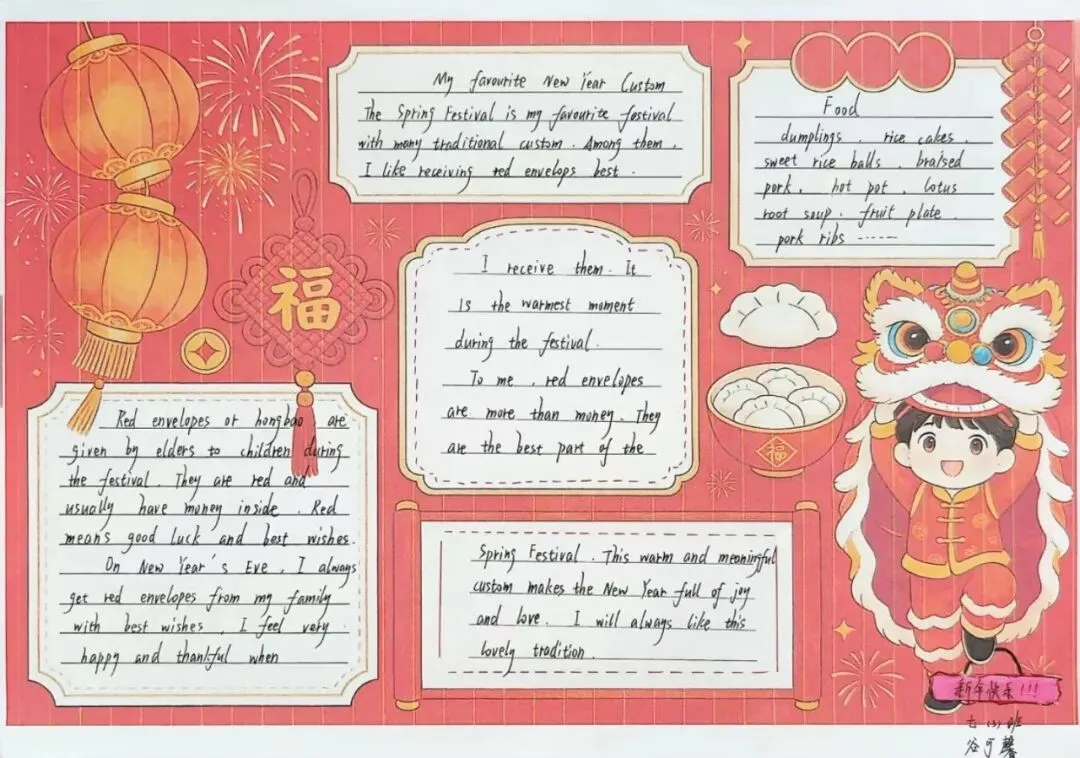 My favourite New Year Custom
The Spring Festival is my favourite festival
with many traditional custom. Among them,
I like receiving red envelops best.
Food
dumplings, rice cakes,
sweet rice balls, braised
pork, hot pot, lotus
root soup, fruit plate
pork ribs -----
福
Red envelopes or hongbao are
given by elders to children during
the festival. They are red and
usually have money inside. Red
means good luck and best wishes.
On New Year's Eve, I always
get red envelopes from my family
with best wishes, I feel very
happy and thankful when
I receive them. It
is the warmest moment
during the festival.
To me, red envelopes
are more than money. They
are the best part of the
福
Spring Festival. This warm and meaningful
custom makes the New Year full of joy
and love. I will always like this
lovely tradition.
新年快乐!!!
七(3)班
谷可馨